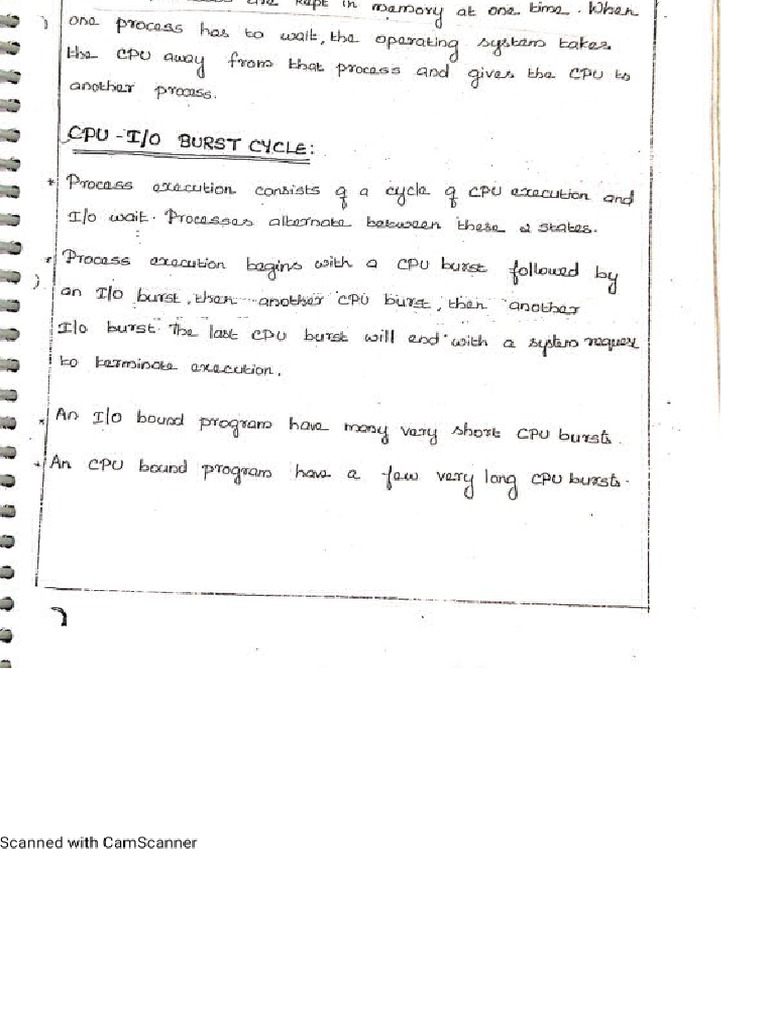 kept in memory at one time. When
one process has to wait, the operating system takes
the CPU away from that process and gives the CPU to
another process.
CPU - I/O BURST CYCLE:
* Process execution consists of a cycle of CPU execution and
I/o wait. Processes alternate between these 2 states.
* Process execution begins with a CPU burst followed by
an I/o burst, then another CPU burst, then another
I/o burst. The last CPU burst will end with a system request
to terminate execution.
* An I/o bound program have many very short CPU bursts.
* An CPU bound program have a few very long CPU bursts.
Scanned with CamScanner